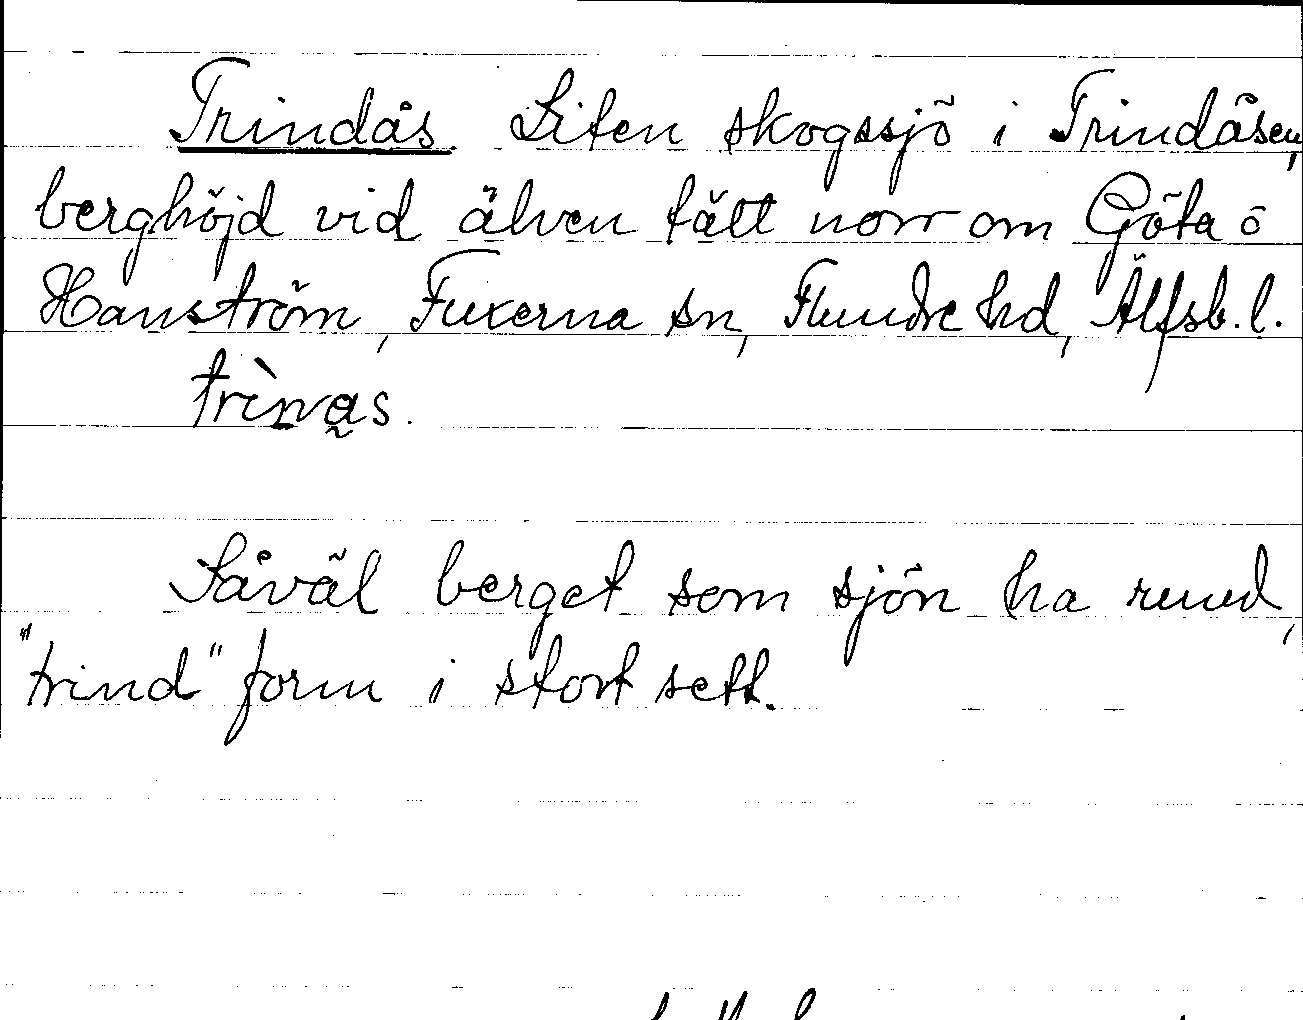 Trindås. Liten skogssjö i Trindåsen,
berghöjd vid älven tätt norr om Göta ö
Hanström, Fuxerna sn, Flundre hd, Älfsb. l.
trìnas.
Såväl berget som sjön ha rund,
"trind" form i stort sett.